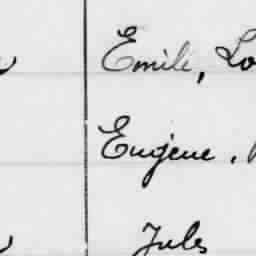 Emile, Lo
Eugène.
Jules